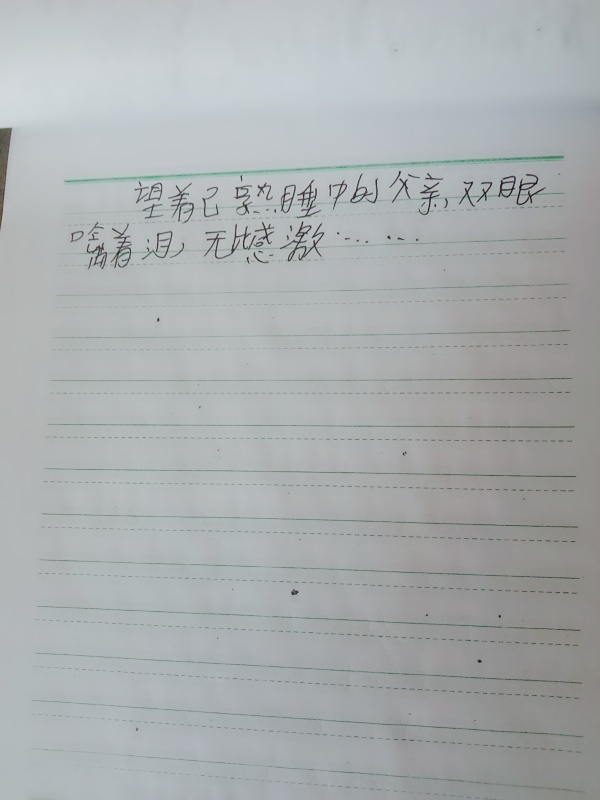 望着已熟睡中的父亲,双眼
噙着泪,无比感激……